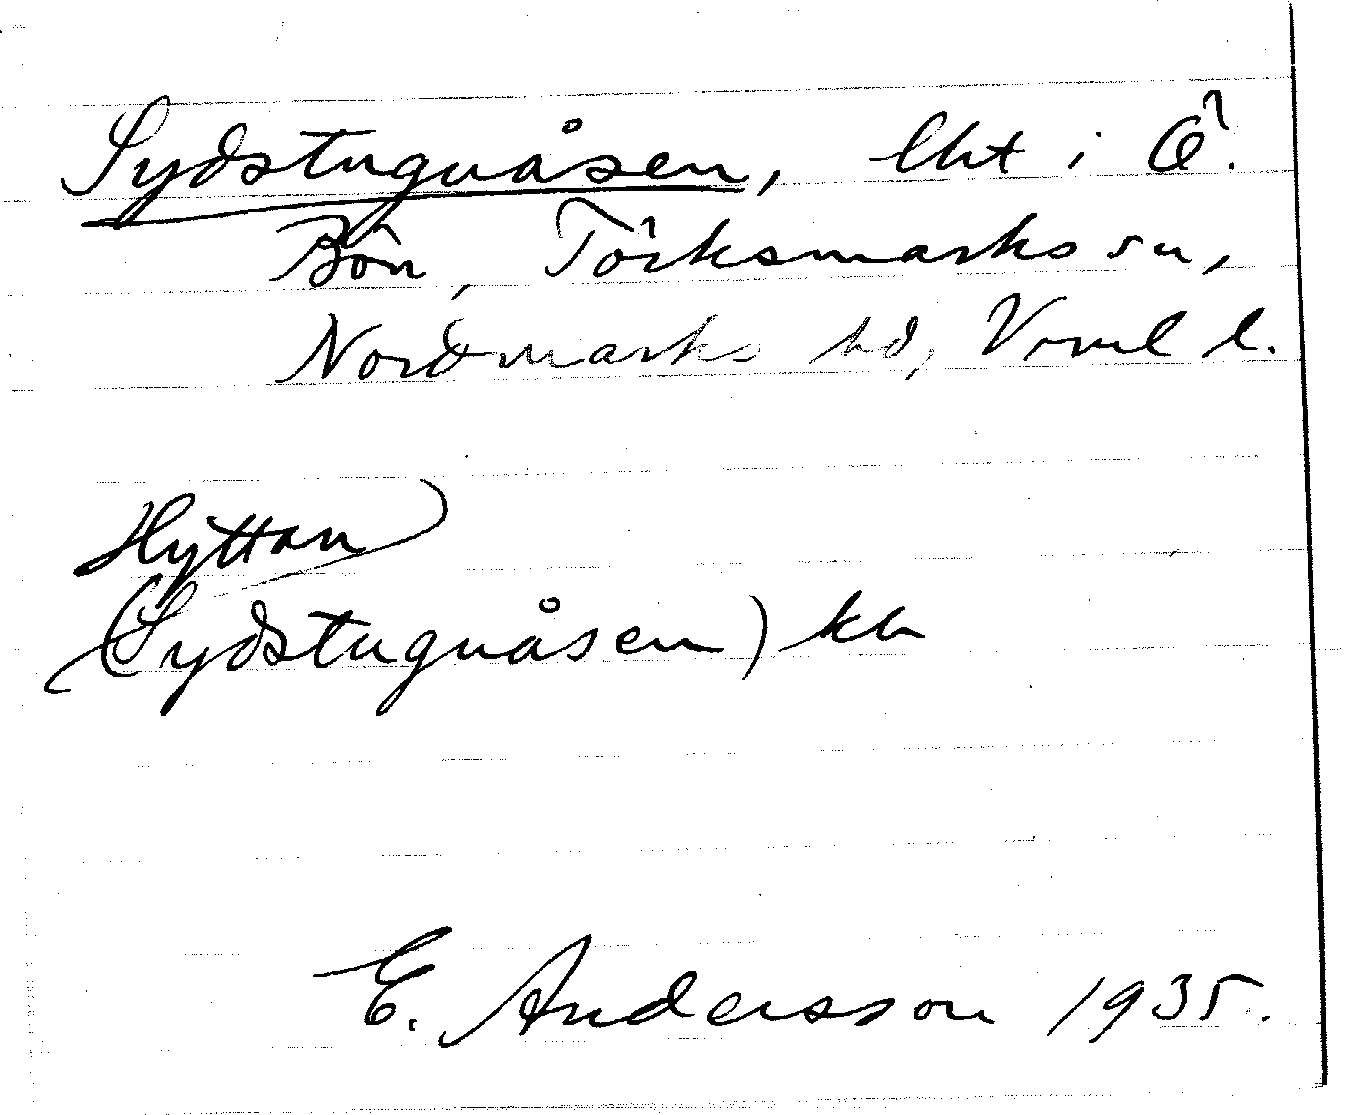 Sydstuguåsen, lht i Ö.
Bön, Törksmarks sn,
Nordmarks hd, Vrml l.
Hyttan
(Sydstuguåsen) kb
E. Andersson 1935.